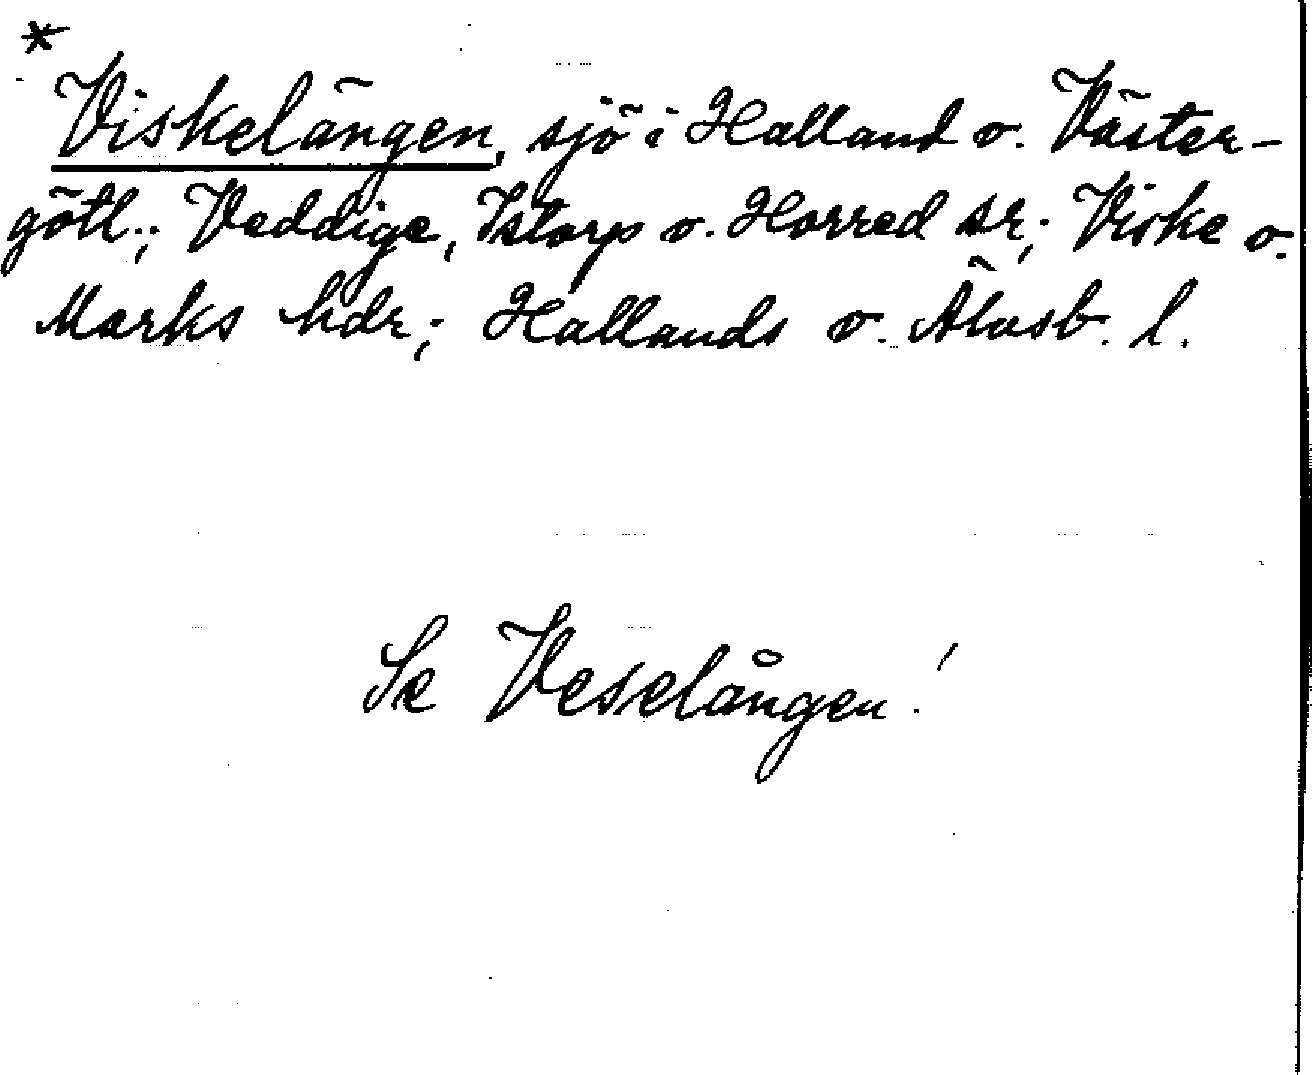 *
Viskelängen, sjö i Halland o. Väster-
götl.; Veddige, Istorp o. Horred sr; Viske o.
Marks hdr; Hallands o. Älvsb. l.
Se Veselången!